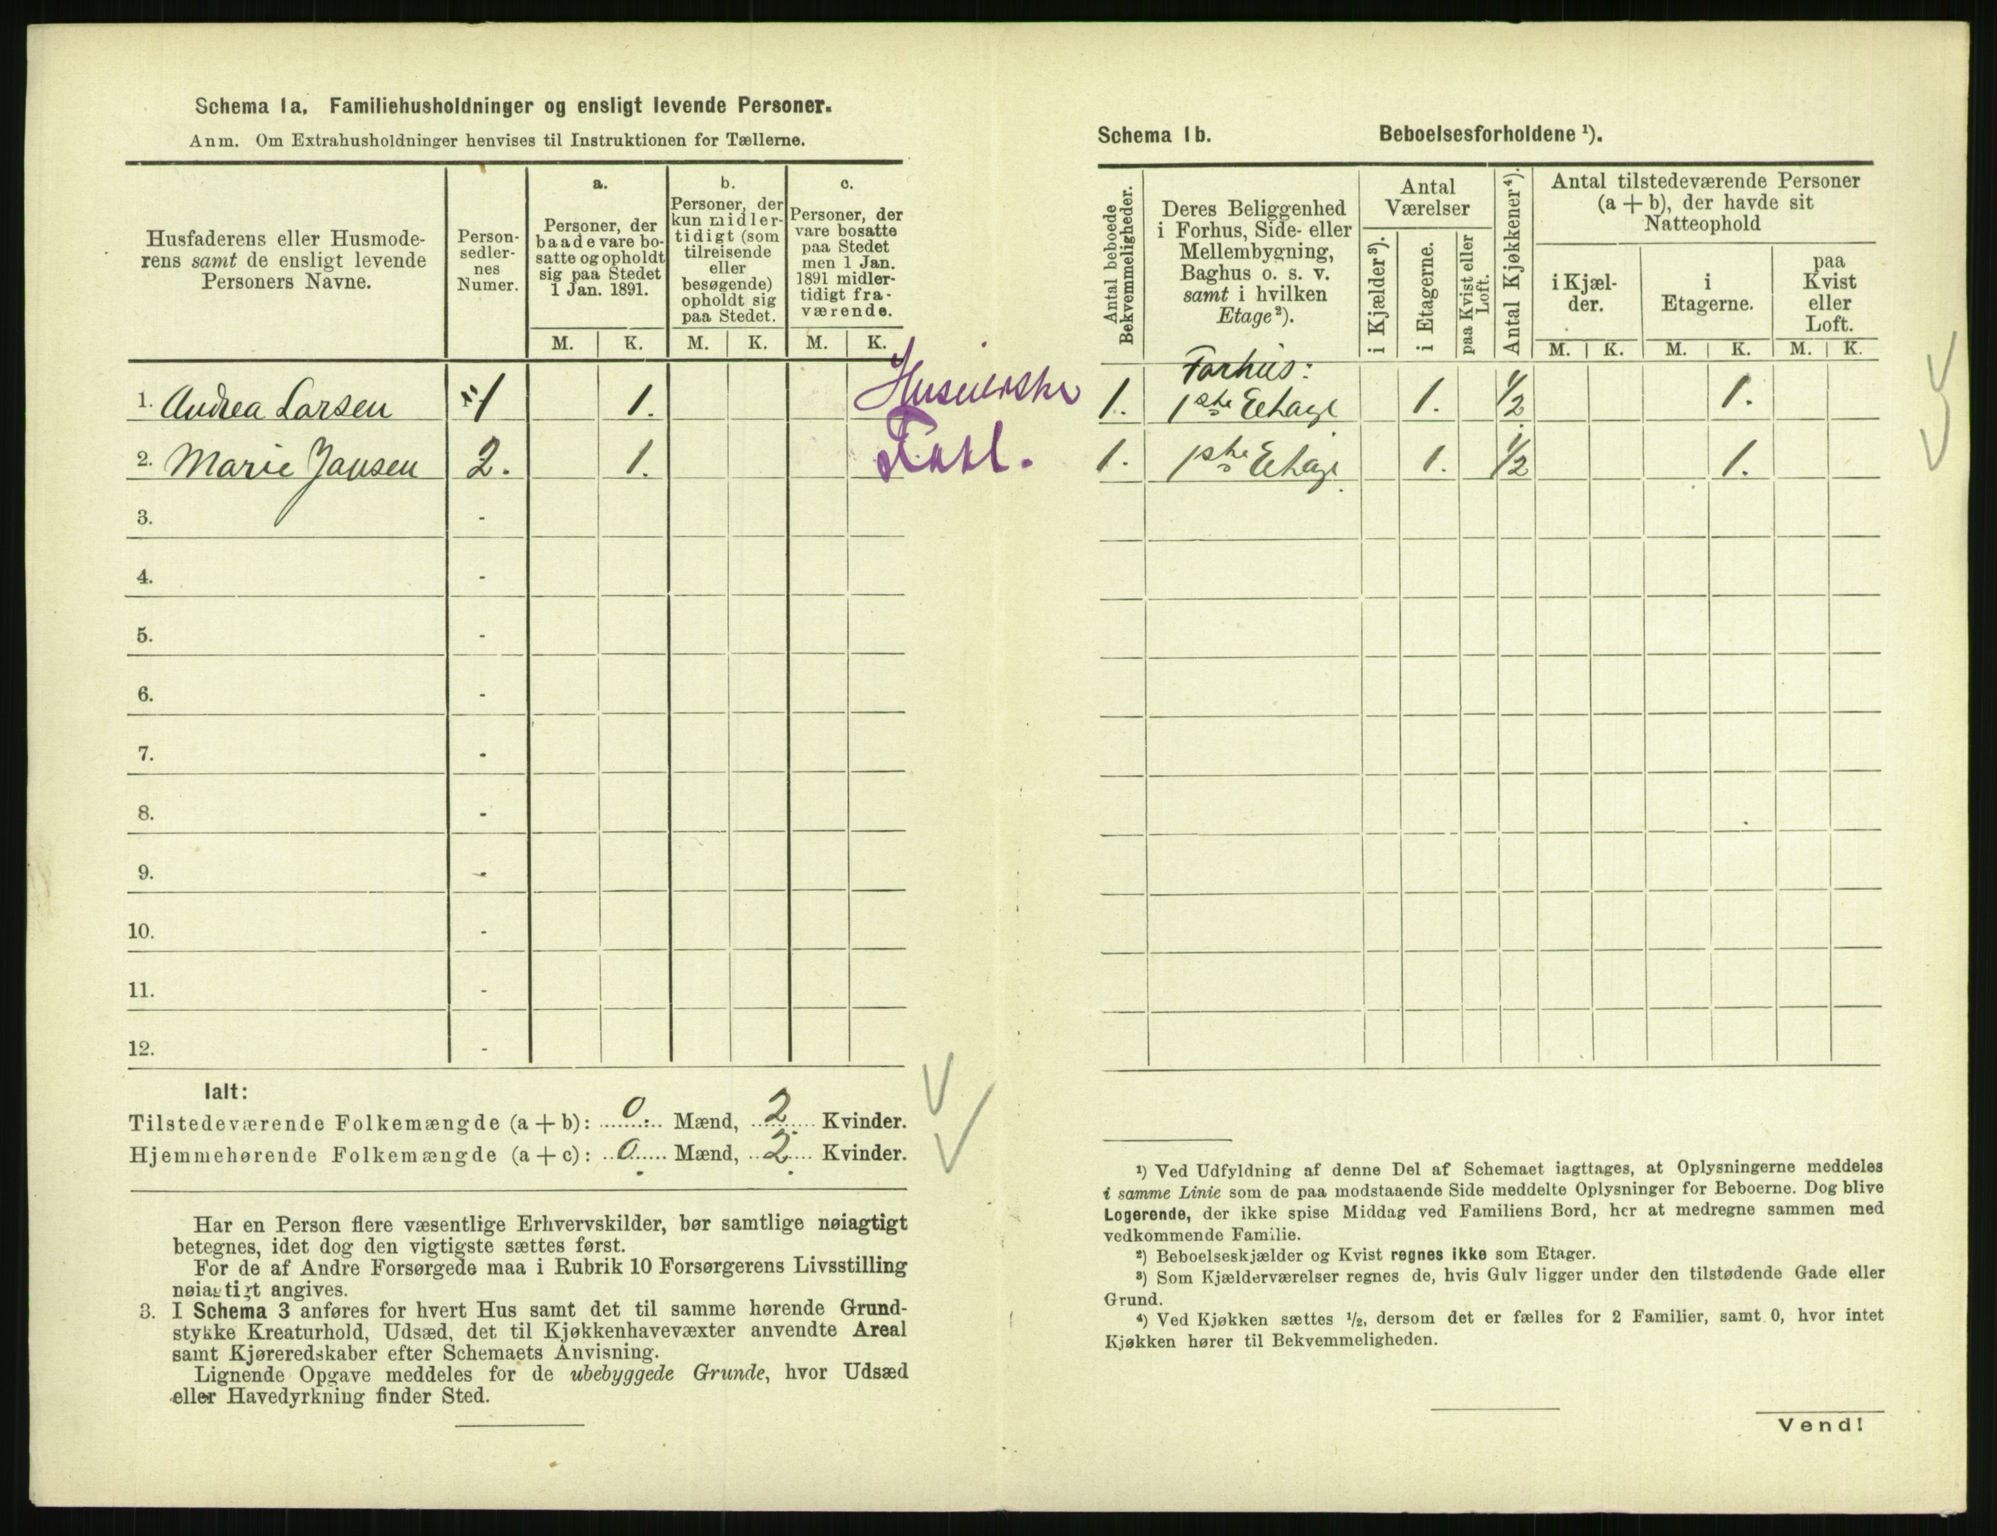 Schema 1a. Familiehusholdninger og ensligt levende Personer.
Anm. Om Extrahusholdninger henvises til Instruktionen for Tællerne.
Husfaderens eller Husmode-
rens samt de ensligt levende
Personers Navne.
Person-
sedler-
nes
Numer.
a.
Personer, der
baade vare bo-
satte og opholdt
sig paa Stedet
1 Jan. 1891.
b.
Personer, der
kun midler-
tidigt (som
tilreisende
eller
besøgende)
opholdt sig
paa Stedet.
c.
Personer, der
vare bosatte
paa Stedet
men 1 Jan.
1891 midler-
tidigt fra-
værende.
M. K. M. K. M. K.
1. Andrea Larsen 1 1.
2. Marie Jansen 2. 1.
3. -
4. -
5. -
6. -
7. -
8. -
9. -
10. -
11. -
12. -
Ialt:
Tilstedeværende Folkemængde (a + b): 0 Mænd, 2 Kvinder.
Hjemmehørende Folkemængde (a + c): 0 Mænd, 2 Kvinder.
Har en Person flere væsentlige Erhvervskilder, bør samtlige nøiagtigt
betegnes, idet dog den vigtigste sættes først.
For de af Andre Forsørgede maa i Rubrik 10 Forsørgerens Livsstilling
nøiagtigt angives.
3. I Schema 3 anføres for hvert Hus samt det til samme hørende Grund-
stykke Kreaturhold, Udsæd, det til Kjøkkenhavevæxter anvendte Areal
samt Kjøreredskaber efter Schemaets Anvisning.
Lignende Opgave meddeles for de ubebyggede Grunde, hvor Udsæd
eller Havedyrkning finder Sted.
Schema 1b. Beboelsesforholdene ¹).
Antal beboede
Bekvemmeligheder.
Deres Beliggenhed
i Forhus, Side- eller
Mellembygning,
Baghus o. s. v.
samt i hvilken
Etage²).
Antal
Værelser
i Kjælder³).
i Etagerne.
paa Kvist eller
Loft.
Antal Kjøkkener⁴).
Antal tilstedeværende Personer
(a + b), der havde sit
Natteophold
i Kjæl-
der.
i
Etagerne.
paa
Kvist
eller
Loft.
M. K. M. K. M. K.
Forhus:
1. 1ste Ethage 1. 1/2 1.
1. 1ste Ethage 1. 1/2 1.
¹) Ved Udfyldning af denne Del af Schemaet iagttages, at Oplysningerne meddeles
i samme Linie som de paa modstaaende Side meddelte Oplysninger for Beboerne. Dog blive
Logerende, der ikke spise Middag ved Familiens Bord, her at medregne sammen med
vedkommende Familie.
²) Beboelseskjælder og Kvist regnes ikke som Etager.
³) Som Kjælderværelser regnes de, hvis Gulv ligger under den tilstødende Gade eller
Grund.
⁴) Ved Kjøkken sættes ½, dersom det er fælles for 2 Familier, samt 0, hvor intet
Kjøkken hører til Bekvemmeligheden.
Vend!